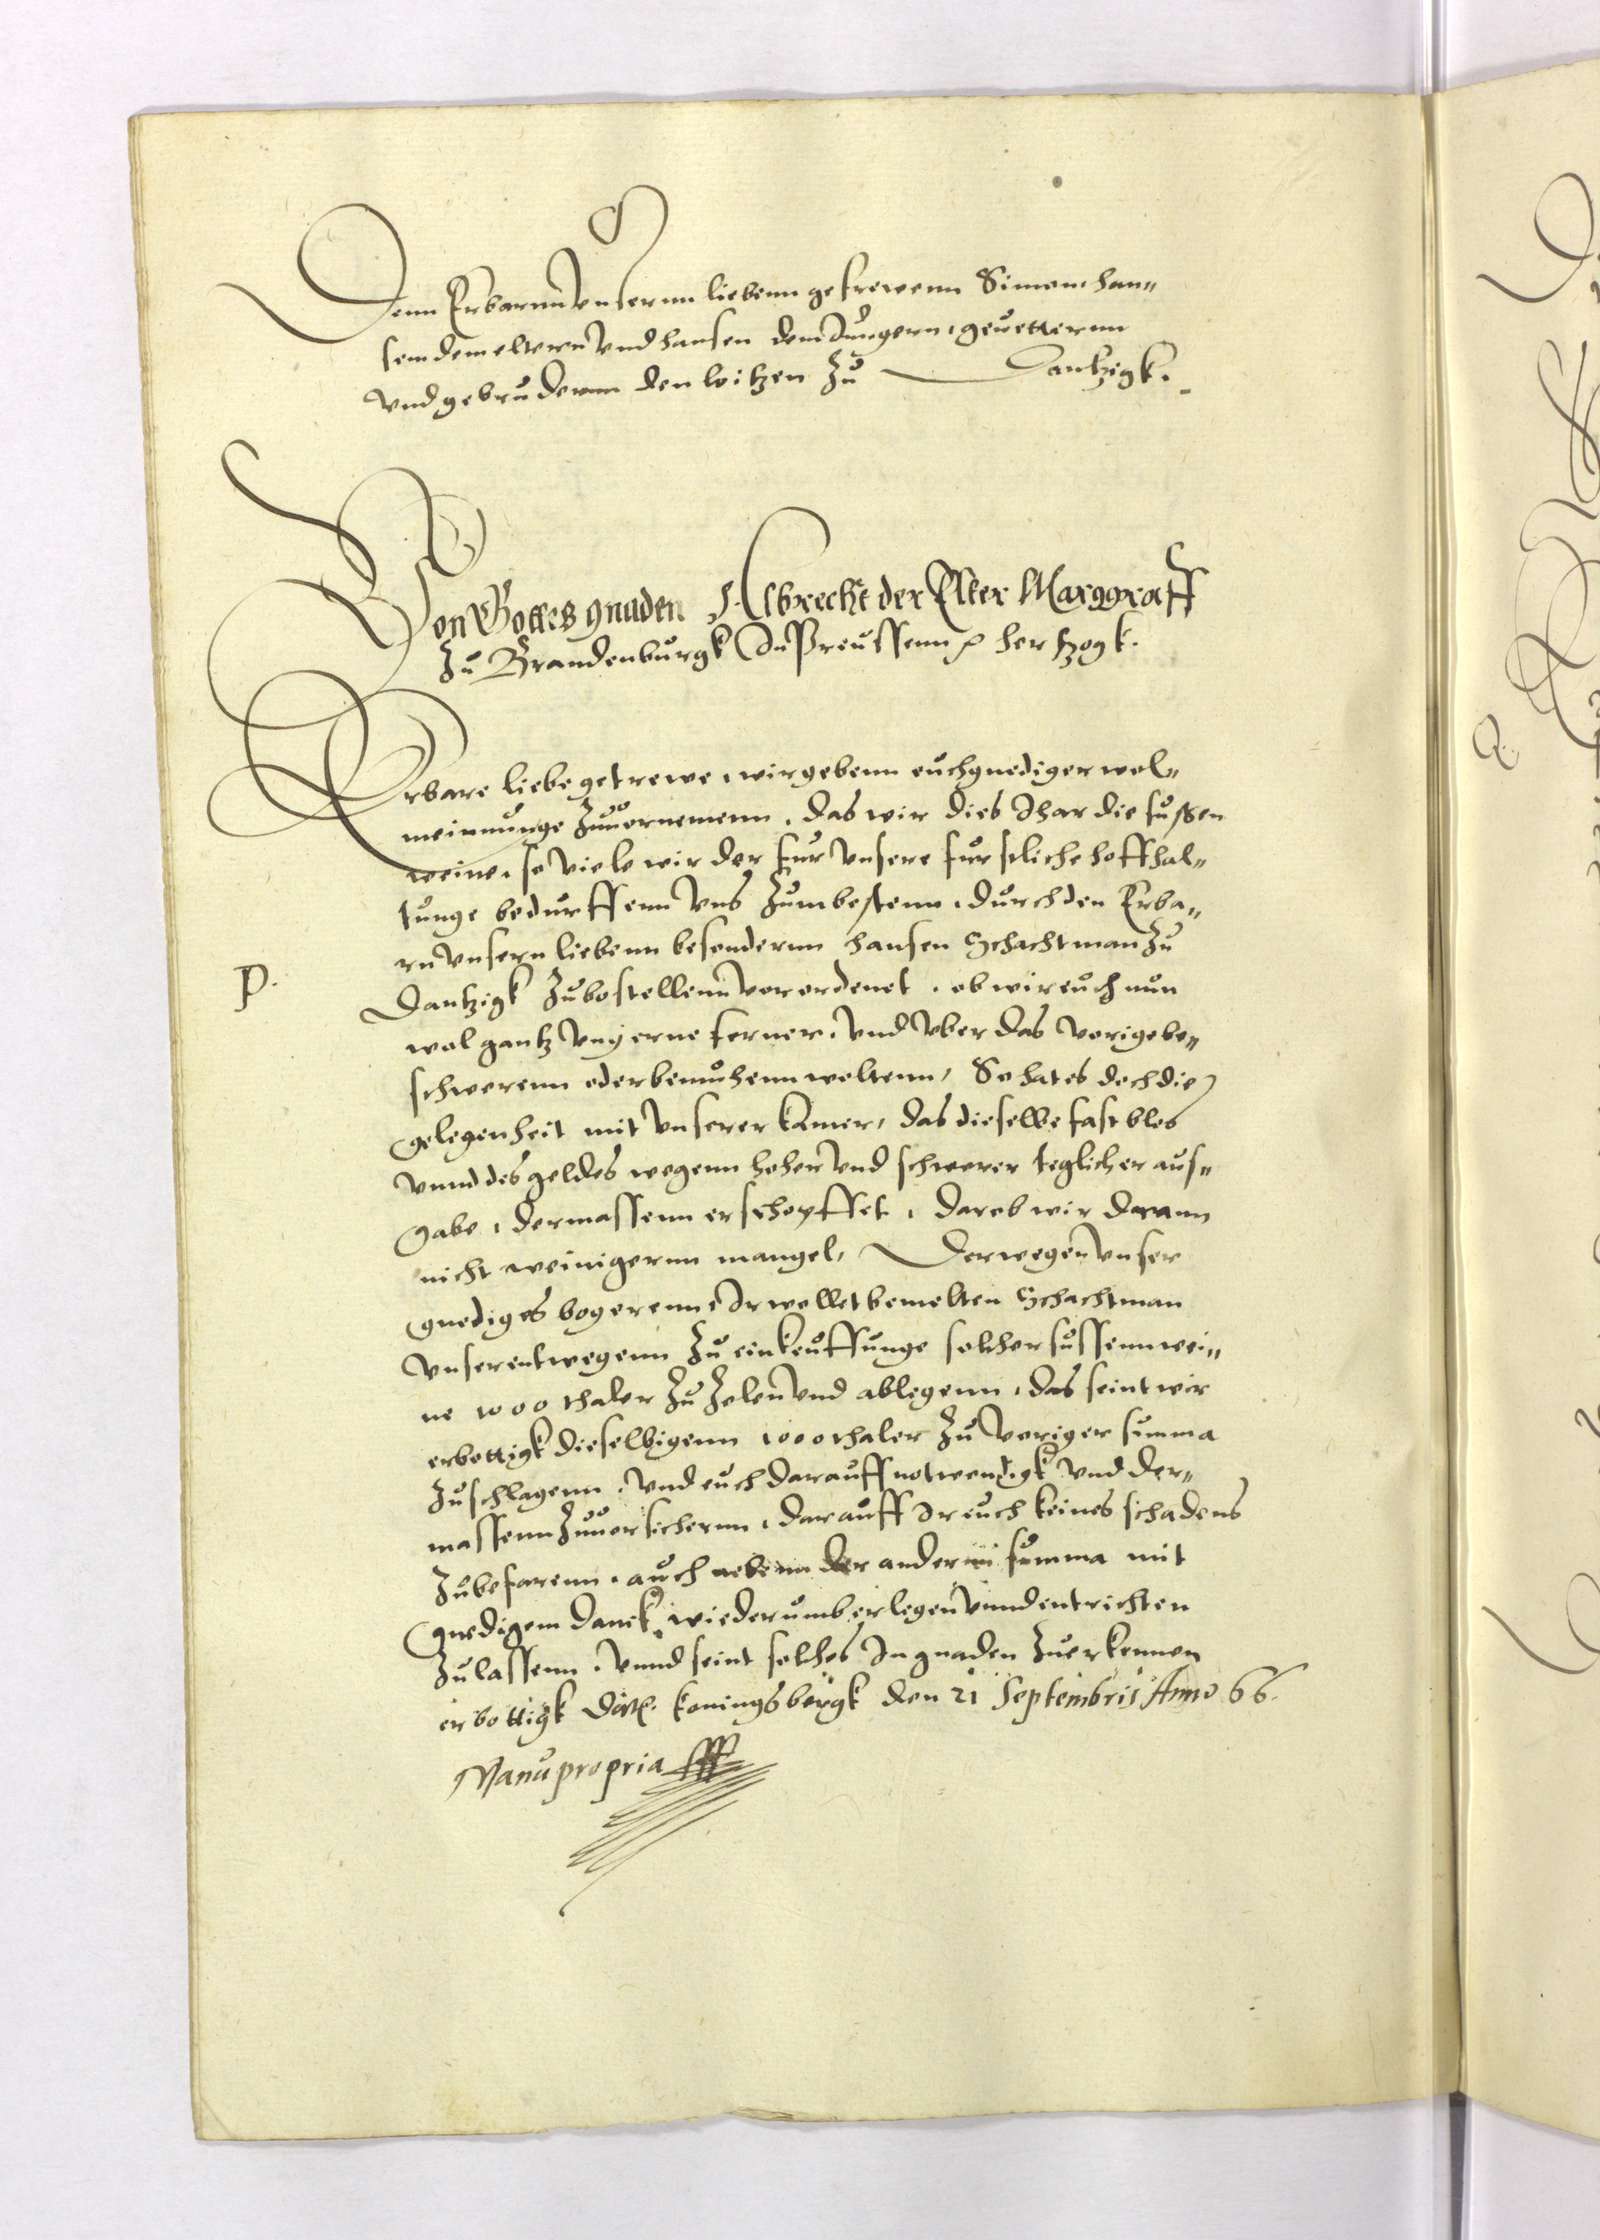 Denn Erbarnn Unsernn liebenn getrewenn Simon, Han„
sen dem eltern Vnd Hansen dem Jungern, geuetternn
Vnd gebrudernn den loitzen Zu Dantzigk.
Von Gottes gnaden Albrecht der Elter Marggraff
Zu Brandenburgk In Preussenn p hertzogk.
Erbare liebe getrewe, wir gebenn euch gnediger wol„
meinunge Zuuornemenn, das wir dies Jhar die sussen
weine, so viele wir der fur Unsere furstliche hoffhal„
tunge bedurffenn Uns Zum bestenn, durch den Erba„
rn Unsern liebenn besondernn Hansen Schachtman Zu
P.
Dantzigk Zubostellenn verordenet, ob wir euch nun
wol gantz Ungerne ferner, Vnd Vber das vorige be„
schwerenn oder bemuhenn woltenn, So hat es doch die
gelegenheit mit Unserer Kamer, das dieselbe fast blos
Vnnd des geldes wegenn hoher Vnd schwerer teglicher aus„
gabe, dermassenn erschopffet, darob wir darann
nicht weinigernn mangel, Derwegen Unser
gnediges bogerenn, Ir wollet bemelten Schachtman
Unserentwegenn Zu einkeuffunge solcher sussenn wei„
ne 1000 thaler Zu Zelen Vnd ablegenn, das seint wir
erbottigk dieselbigenn 1000 thaler Zu voriger summa
Zuschlagenn, Vnd euch darauff notwendigk Vnd der„
massenn Zuuorsichernn, darauff Ir euch keines schadens
Zubefarenn, auch nebenn der andernn summa mit
gnedigem danck, wiederumb erlegen Vnnd entrichten
Zulassenn, Vnnd seint solches In gnaden Zuerkennen
erbottigk Dat. Koningsbergk den 21 Septembris Anno 66.
Manu propria